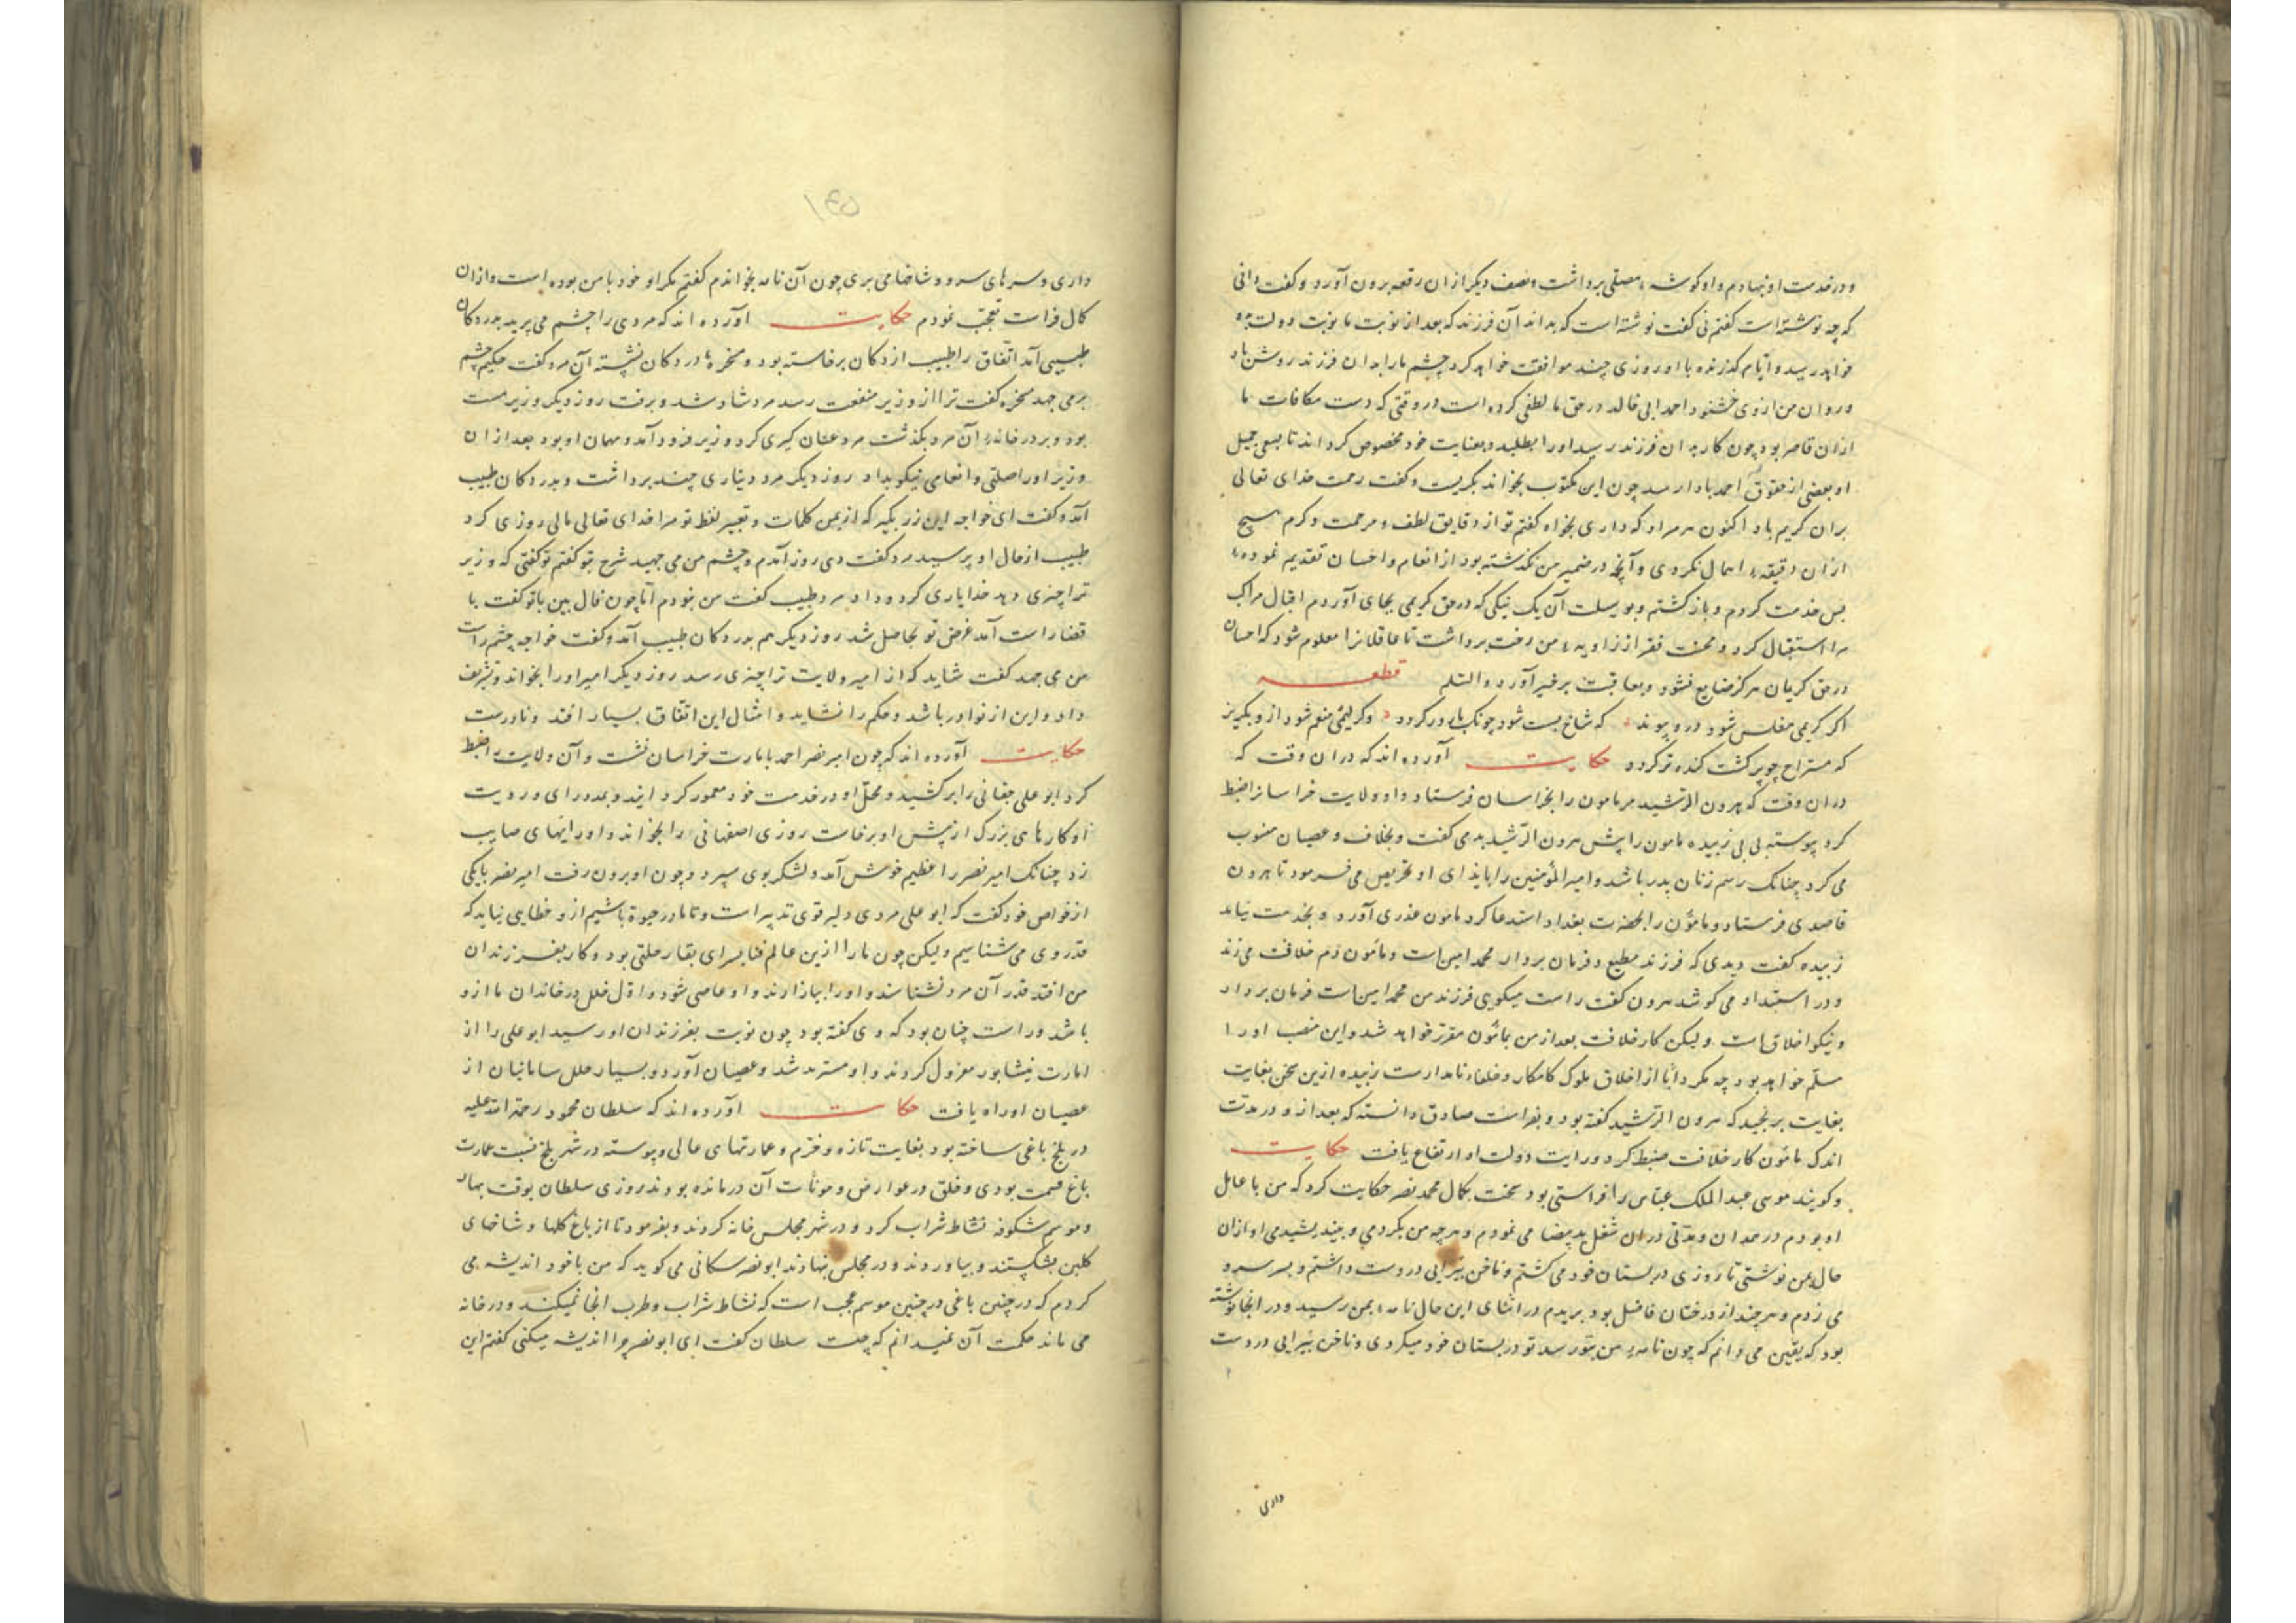 و در خدمت او نهادم و او گوشهٔ مصلی برداشت و نصف دیگر از آن رقعه برون آورد و گفت دانی
که چه نوشته است گفتم نی گفت نوشته است که بداند آن فرزند که بعد از نوبت ما نوبت دولت بدو
خواهد رسید و ایام گذرنده با او روزی چند موافقت خواهد کرد چشم ما را بدان فرزند روشن باد
و روان من از وی خشنود احمد ابی خالد در حق ما لطفی کرده است در وقتی که دست مکافات ما
از آن قاصر بود چون کار بدان فرزند رسید او را بطلبد و بعنایت خود مخصوص کرداند تا بسعی جمیل
او بعضی از حقوق احمد بادا رسد چون این مکتوب بخواند بگریست و گفت رحمت خدای تعالی
بران کریم باد اکنون هر مراد که داری بخواه گفتم تو از دقایق لطف و مرحمت و کرم هیچ
ازان دقیقهٔ اهمال نکردی و آنچه در ضمیر من نگذشته بود از انعام و احسان تقدیم نموده
پس خدمت کردم و بازگشتم و بوسیلت آن یک نیکی که در حق کریمی بجای آوردم اقبال مراکب
مرا استقبال کرد و محنت فقر از زاویهٔ من رخت برداشت تا عاقلانرا معلوم شود که احسان
در حق کریمان هرگز ضایع نشود و بعاقبت بر خیر آورد والسلم قطعه
اگر کریمی مفلس شود درو پیوند که شاخ پست شود چونک بارور کردد وگر لئیمی منعم شود ازو بگریز
که مستراح چو پر گشت گنده تر کردد حکایت آورده اند که دران وقت که
دران وقت که هرون الرشید مر مامون را بخراسان فرستاد و او ولایت خراسانرا ضبط
کرد پیوسته بی بی زبیده مامون را پیش هرون الرشید بد می گفت و بخلاف و عصیان منسوب
می کرد چنانک رسم زنان پدر باشد و امیر المؤمنین را بایذای او تحریص می فرمود تا هرون
قاصدی فرستاد و مامون را بحضرت بغداد استدعا کرد مامون عذری آورد و بخدمت نیامد
زبیده گفت دیدی که فرزند مطیع و فرمان بردار محمد امین است و مامون دم خلافت می زند
و در استبداد می کوشد هرون گفت راست میگویی فرزند من محمد امین است فرمان بردار
و نیکو اخلاق است ولیکن کار خلافت بعد از من بمامون مقرر خواهد شد و این منصب او را
مسلم خواهد بود چه مکر دانا از اخلاق ملوک کامکار و خلفاء نامدارست زبیده ازین سخن بغایت
بغایت برنجید که هرون الرشید گفته بود و بفراست صادق دانسته که بعد از و در مدت
اندک مامون کار خلافت ضبط کرد و رایت دولت او ارتفاع یافت حکایت
و گویند موسی عبد الملک عباس را فراستی بود سخت بکمال محمد نصر حکایت کرد که من با عامل
او بودم در همدان و مدتی دران شغل ید بیضا می نمودم و هرچه من بکردمی و بیندیشیدمی او ازان
حال بمن نوشتی تا روزی در بستان خود می گشتم و ناخن پیرایی در دست داشتم و بسر سرو
می زدم و هر چند از درختان فاضل بود بریدم در اثنای این حال نامهٔ بمن رسید و در انجا نوشته
بود که یقین می دانم که چون نامهٔ من بتو رسد تو در بستان خود میگردی و ناخن پیرایی در دست
داری
۱۴۵
داری و سرهای سرو و شاخها می بری چون آن نامه بخواندم گفتم مگر او خود با من بوده است و ازان
کمال فراست تعجب نمودم حکایت آورده اند که مردی را چشم می پرید بدر دکان
طبیبی آمد اتفاق را طبیب از دکان برخاسته بود و مسخرهٔ بر در دکان نشسته آن مرد گفت حکیم چشم
برمی جهد مسخره گفت ترا از وزیر منفعت رسد مرد شاد شد و برفت روز دیگر وزیر مست
بود و بر در خانهٔ آن مرد بگذشت مرد عنان گیری کرد وزیر فرود آمد و مهمان او بود بعد ازان
وزیر او را صلتی و انعامی نیکو بداد روز دیگر مرد دیناری چند برداشت و بدر دکان طبیب
آمد و گفت ای خواجه این زر بگیر که از یمن کلمات و تعبیر لفظ تو مرا خدای تعالی مالی روزی کرد
طبیب از حال او پرسید مرد گفت دی روز آمدم و چشم من می جهید شرح بتو گفتم تو گفتی که وزیر
ترا چیزی دهد خدا یاری کرد و داد مرد طبیب گفت من نبودم اما چون فال بین با تو گفت با
قضا راست آمد غرض تو بحاصل شد روز دیگر هم بدر دکان طبیب آمد و گفت خواجه چشم راست
من می جهد گفت شاید که از امیر ولایت ترا چیزی رسد روز دیگر امیر او را بخواند و تشریف
داد و این از نوادر باشد و حکم را نشاید و امثال این اتفاق بسیار افتد و نادرست
حکایت آورده اند که چون امیر نصر احمد بامارت خراسان نشست و آن ولایت را ضبط
کرد ابو علی چغانی را برکشید و محل او در خدمت خود معمور گردانید و بمدد رای و رویت
او کارهای بزرگ از پیش او برخاست روزی اصفهانی را بخواند و او رایهای صایب
زد چنانک امیر نصر را عظیم خوش آمد و لشکر بوی سپرد و چون او برون رفت امیر نصر بایکی
از خواص خود گفت که ابو علی مردی دلیر قوی تدبیر است و تا ما در حیوة باشیم ازو خطایی نیاید که
قدر وی می شناسیم ولیکن چون ما را ازین عالم فنا بسرای بقا رحلتی بود و کار بفرزندان
من افتد قدر آن مرد نشناسند و او را بیازارند و او عاصی شود و اول خلل در خاندان ما ازو
باشد و راست چنان بود که وی گفته بود چون نوبت بفرزندان او رسید ابو علی را از
امارت نیشابور معزول کردند و او مستزید شد و عصیان آورد و بسیار خلل سامانیان از
عصیان او راه یافت حکایت آورده اند که سلطان محمود رحمة الله علیه
در بلخ باغی ساخته بود بغایت تازه و خرم و عمارتهای عالی و پیوسته در شهر بلخ نسبت عمارت
باغ قسمت بودی و خلق در عوارض و مونات آن درمانده بودند روزی سلطان بوقت بهار
و موسم شکوفه نشاط شراب کرد و در شهر مجلس خانه کردند و بفرمود تا از باغ گلها و شاخهای
گلبن بشکستند و بیاوردند و در مجلس بنهادند ابو نصر سکانی می گوید که من با خود اندیشه می
کردم که در چنین باغی در چنین موسم عجب است که نشاط شراب و طرب انجا نمیکنند و در خانه
می ماند حکمت آن نمیدانم که چیست سلطان گفت ای ابو نصر چرا اندیشه میکنی گفتم این